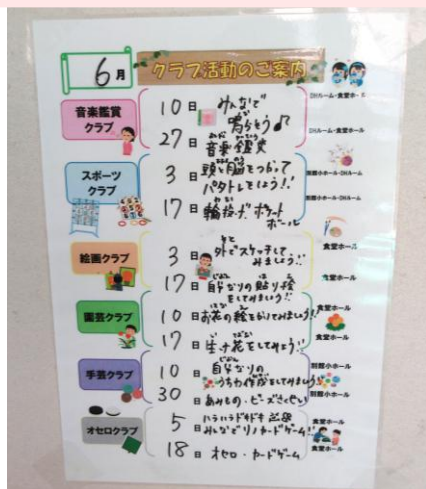 6月
クラブ活動のご案内
音楽鑑賞
クラブ
10日 みんなで
鳴らそう♪
DHルーム・食堂ホール
27日 音楽鑑賞
DHルーム・食堂ホール
スポーツ
クラブ
3日 頭と脳をつかって
パタトレをしよう!!
別館小ホール・DHルーム
17日 輪投げ、ポケット
ボール
別館小ホール・DHルーム
絵画クラブ
3日 外でスケッチして
みましょう!!
食堂ホール
17日 自分なりの貼り絵
をしてみましょう!!
食堂ホール
園芸クラブ
10日 お花の絵をかいてみましょう!!
食堂ホール
17日 生け花をしてみよう!!
食堂ホール
手芸クラブ
10日 自分なりの
うちわ作成をしてみましょう!!
別館小ホール
30日 あみもの・ビーズさくせい
別館小ホール
オセロクラブ
5日 ハラハラドキドキ
みんなでリノカードゲーム!!
食堂ホール
18日 オセロ・カードゲーム
食堂ホール